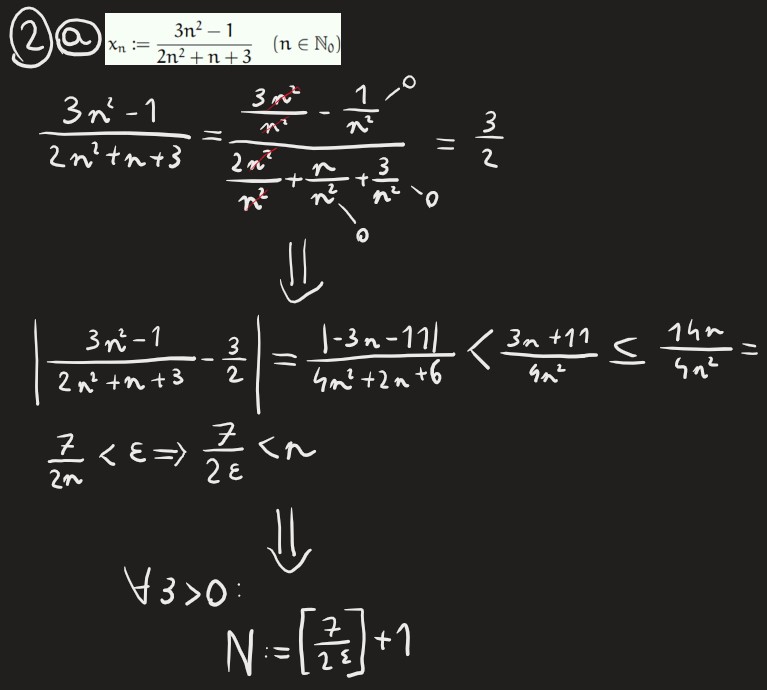 2 a x_n := (3n² − 1)/(2n² + n + 3) (n ∈ ℕ₀)
(3n² - 1)/(2n² + n + 3) = (3n²/n² - 1/n² → 0)/(2n²/n² + n/n² → 0 + 3/n² → 0) = 3/2
⇓
|(3n² - 1)/(2n² + n + 3) - 3/2| = |-3n - 11|/(4n² + 2n + 6) < (3n + 11)/(4n²) ≤ (14n)/(4n²) =
7/(2n) < ε => 7/(2ε) < n
⇓
∀ 3 > 0:
N := [7/(2ε)] + 1